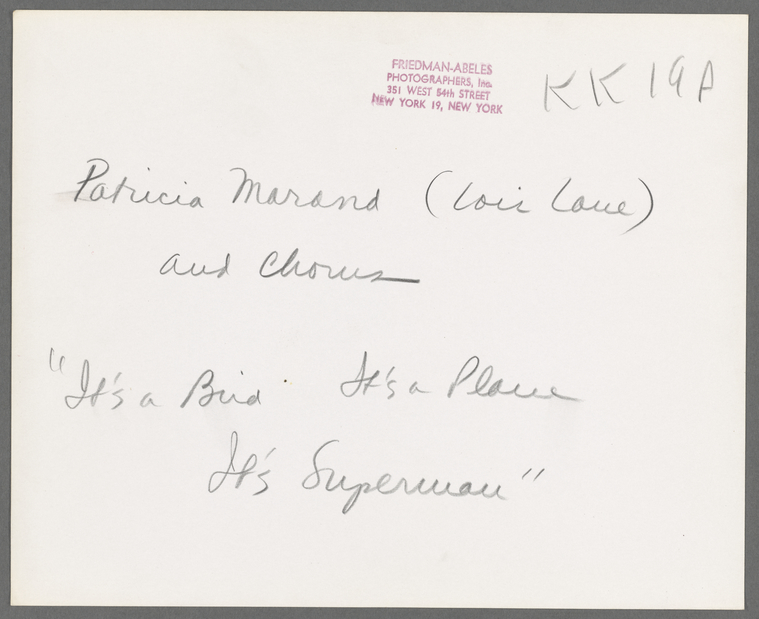 FRIEDMAN-ABELES
PHOTOGRAPHERS, Inc.
351 WEST 54th STREET
NEW YORK 19, NEW YORK
KK 19A
Patricia Marand (Lois Lane)
and Chorus
"It's a Bird It's a Plane
It's Superman"